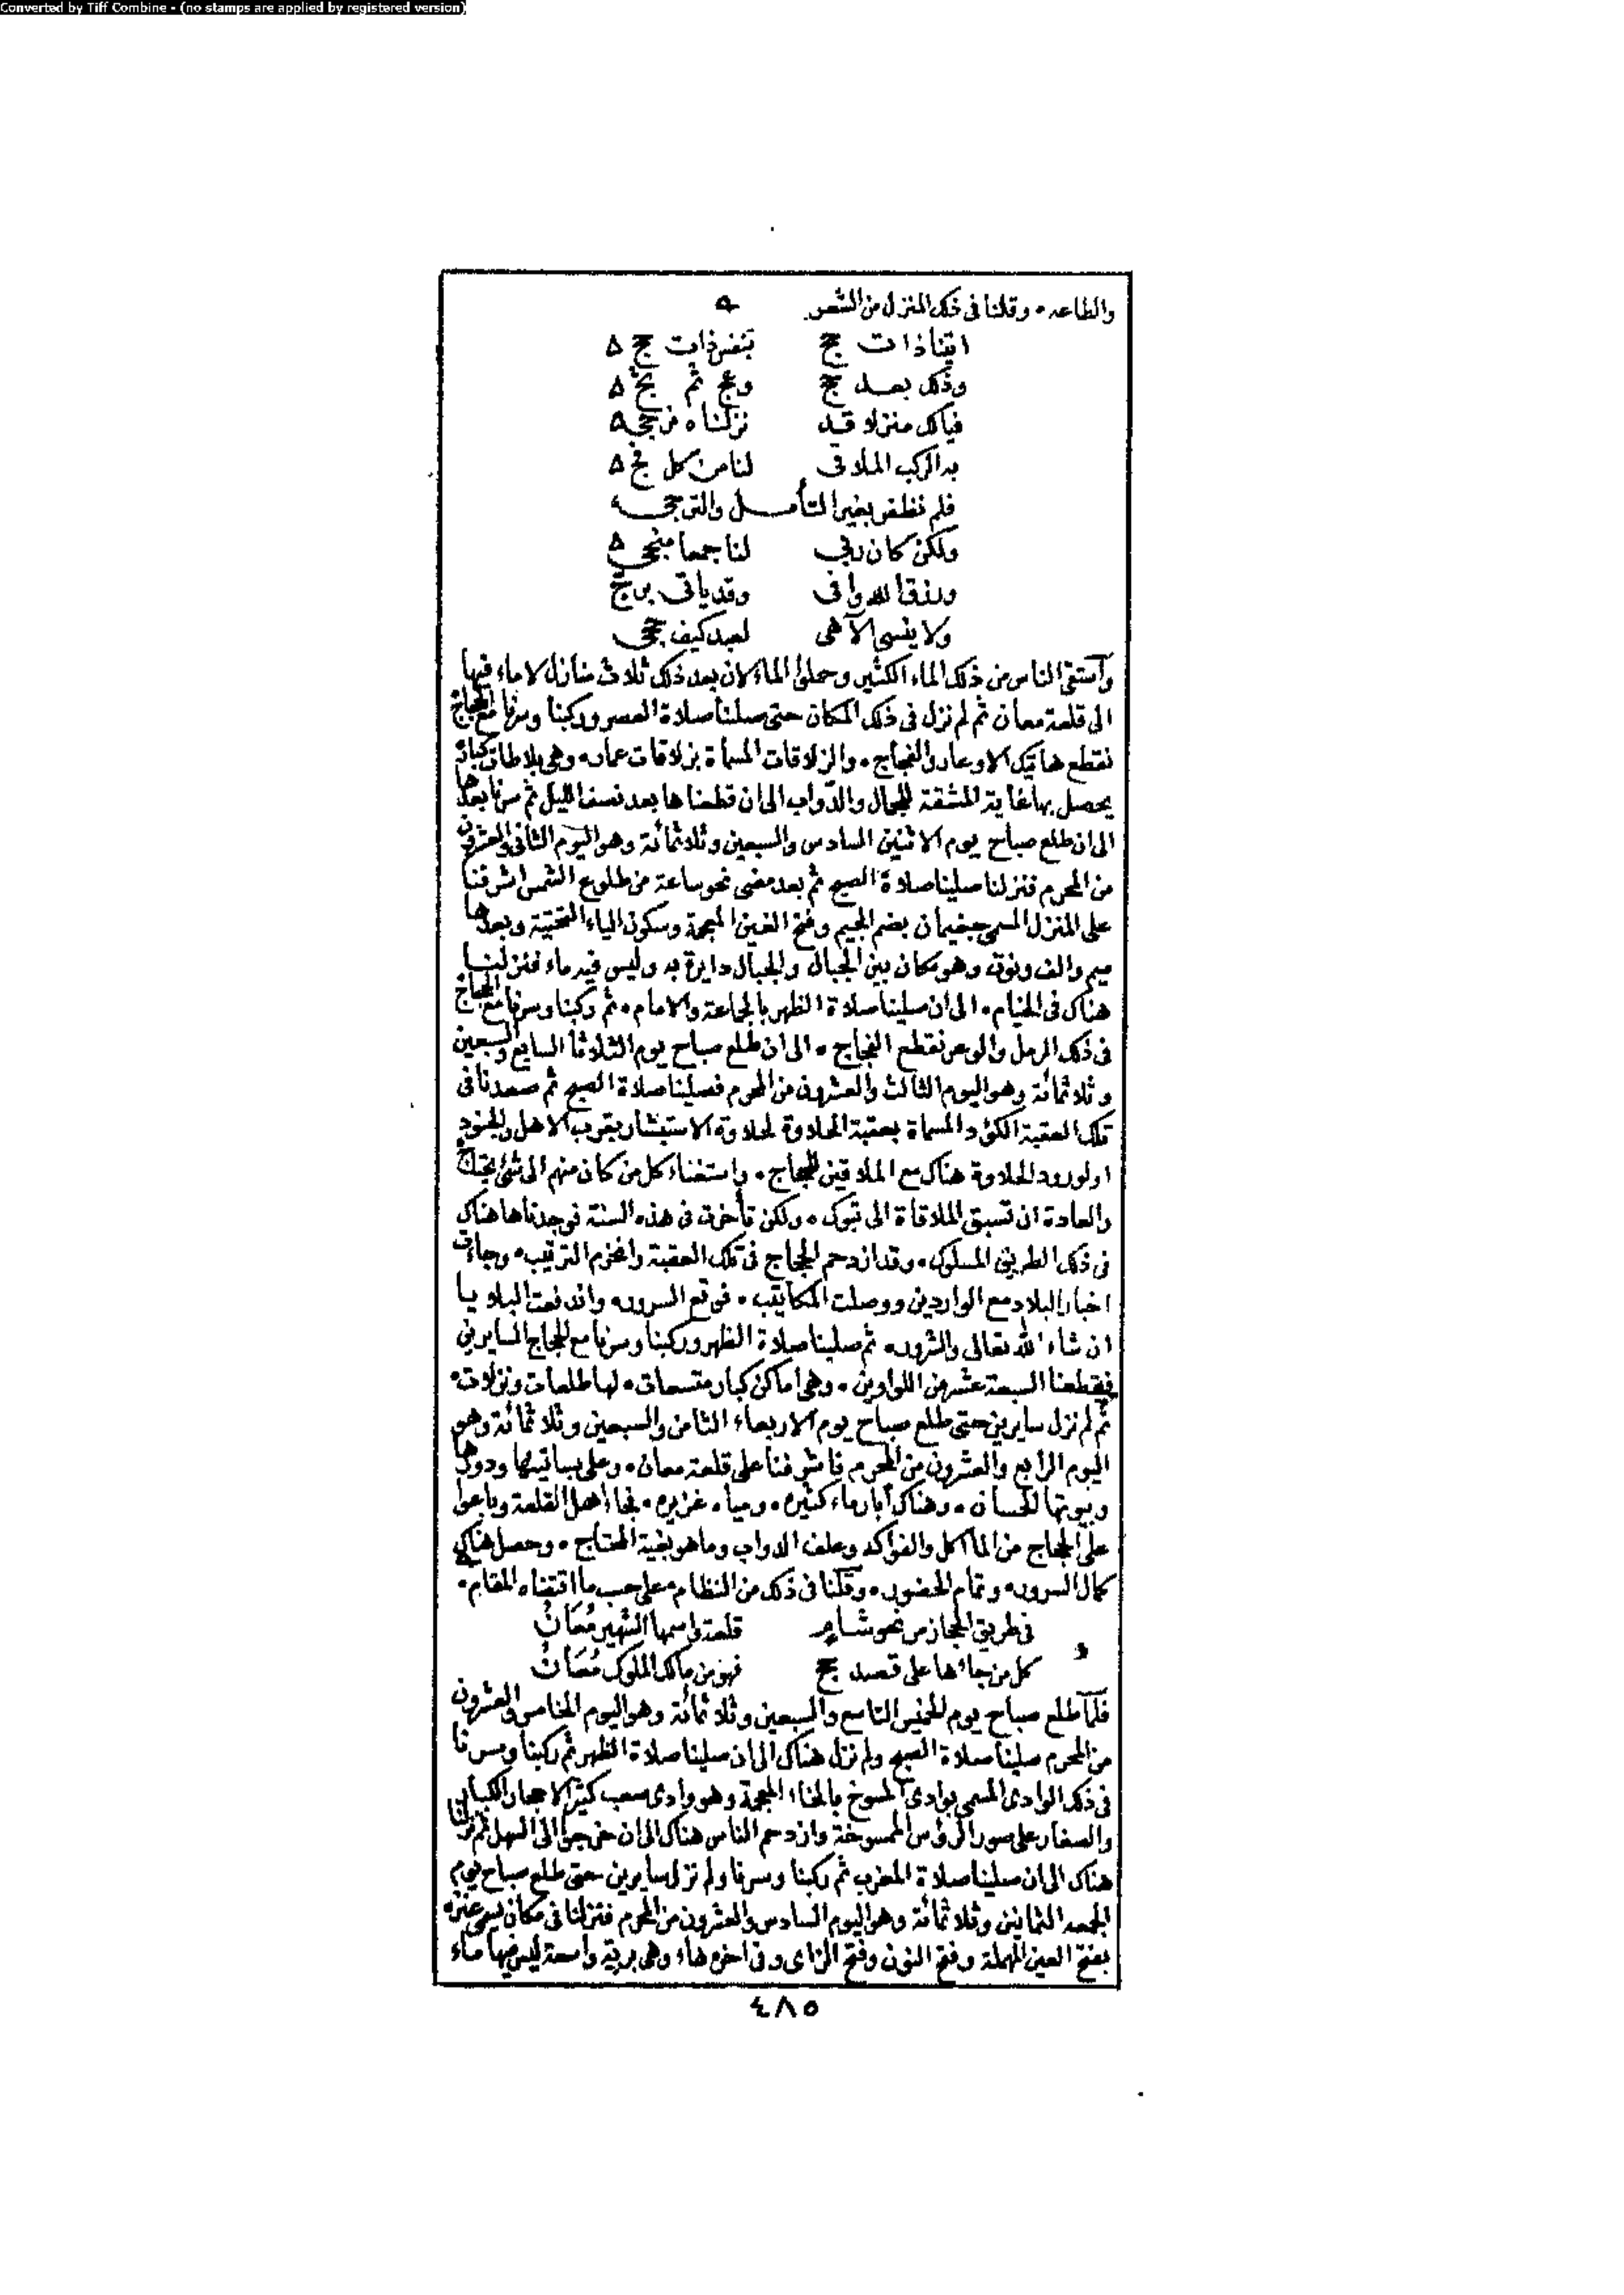 Converted by Tiff Combine - (no stamps are applied by registered version)
والطاعه • وقلنا فى ذلك المنزل من الشعر
اتينا ذات حج بنفس ذات حج
وذلك بعد حج وعج ثم
فيالك منزلا قد نزلناه
به الركب الملاقى لنا من كل فج
فلم نظفر بغير التأمل والترجى
ولكن كان ربى لنا جمعا منجى
ورزق الله وافى وقد ياتى
ولا ينسى الآهى لعبد كيف
وأستقى الناس من ذلك الماء الكثير وحملوا الماء لان بعد ذلك ثلاث منازل لا ماء فيها
الى قلعة معان ثم لم نزل فى ذلك المكان حتى صلينا صلاة العصر وركبنا وسرنا مع الحجاج
نقطع هاتيك الاوعار والفجاج • والزلاقات المسماة بزلاقات عمار • وهى بلاطات كبار
يحصل بها غاية المشقة للجمال والدواب الى ان قطعناها بعد نصف الليل ثم سرنا بعدها
الى ان طلع صباح يوم الاثنين السادس والسبعين وثلاثمائة وهو اليوم الثانى والعشرون
من المحرم فنزلنا صلينا صلاة الصبح ثم بعد مضى نحو ساعة من طلوع الشمس اشرفنا
على المنزل المسمى جغيمان بضم الجيم وفتح الغين المعجمة وسكون الياء التحتية وبعدها
ميم والف ونون وهو مكان بين الجبال والجبال دايرة به وليس فيه ماء فنزلنا
هناك فى الخيام • الى ان صلينا صلاة الظهر بالجماعة والامام • ثم ركبنا وسرنا مع الحجاج
فى ذلك الرمل والوعر نقطع الفجاج • الى ان طلع صباح يوم الثلاثا السابع والسبعين
وثلاثمائة وهو اليوم الثالث والعشرون من المحرم فصلينا صلاة الصبح ثم صعدنا فى
تلك العقبة الكؤد المسماة بعقبة الحلاوة لحلاوة الاستبشار بقرب الاهل والجنود
او لورود الحلاوة هناك مع الملاقين للحجاج • واستغناء كل من كان منهم الى شئ يحتاج
والعادة ان تسبق الملاقاة الى تبوك • ولكن تأخرت فى هذه السنة فوجدناها هناك
فى ذلك الطريق المسلوك • وقد ازدحم الحجاج فى تلك العقبة وانخرم الترتيب • وجاءت
اخبار البلاد مع الواردين ووصلت المكاتيب • فوقع السرور • واندفعت البلايا
ان شاء الله تعالى والشرور • ثم صلينا صلاة الظهر وركبنا وسرنا مع الحجاج السايرين
فقطعنا السبعة عشر من اللواوين • وهى اماكن كبار متسعات • لها طلعات ونزلات •
ثم لم نزل سايرين حتى طلع صباح يوم الاربعاء الثامن والسبعين وثلاثمائة وهو
اليوم الرابع والعشرون من المحرم فاشرفنا على قلعة معان • وعلى بساتينها ودورها
وبيوتها الحسان • وهناك أبار ماء كثيره • ومياه غزيره • فجاء اهل القلعة وباعوا
على الحجاج من المآكل والفواكه وعلف الدواب وما هو بغية المحتاج • وحصل هناك
كمال السرور • وتمام الحضور • وقلنا فى ذلك من النظام • على حسب ما اقتضاه المقام •
فى طريق الحجاز من نحو شام قلعة واسمها الشهير مُعَانُ
كل من جاءها على قصد حج فهو من مالك الملوك مُعَانُ
فلما طلع صباح يوم الخميس التاسع والسبعين وثلاثمائة وهو اليوم الخامس والعشرون
من المحرم صلينا صلاة الصبح ولم نزل هناك الى ان صلينا صلاة الظهر ثم ركبنا وسرنا
فى ذلك الوادى المسمى بوادى المسوخ بالخاء المعجمة وهو وادى صعب كثير الاحجار الكبار
والصغار على صور الرؤس الممسوخة وازدحم الناس هناك الى ان خرجوا الى السهل ثم نزلنا
هناك الى ان صلينا صلاة المغرب ثم ركبنا وسرنا ولم نزل سايرين حتى طلع صباح يوم
الجمعه الثمانين وثلاثمائة وهو اليوم السادس والعشرون من المحرم فنزلنا فى مكان يسمى عنزه
بفتح العين المهملة وفتح النون وفتح الزاى وفى اخره هاء وهى برية واسعة ليس فيها ماء
٤٨٥